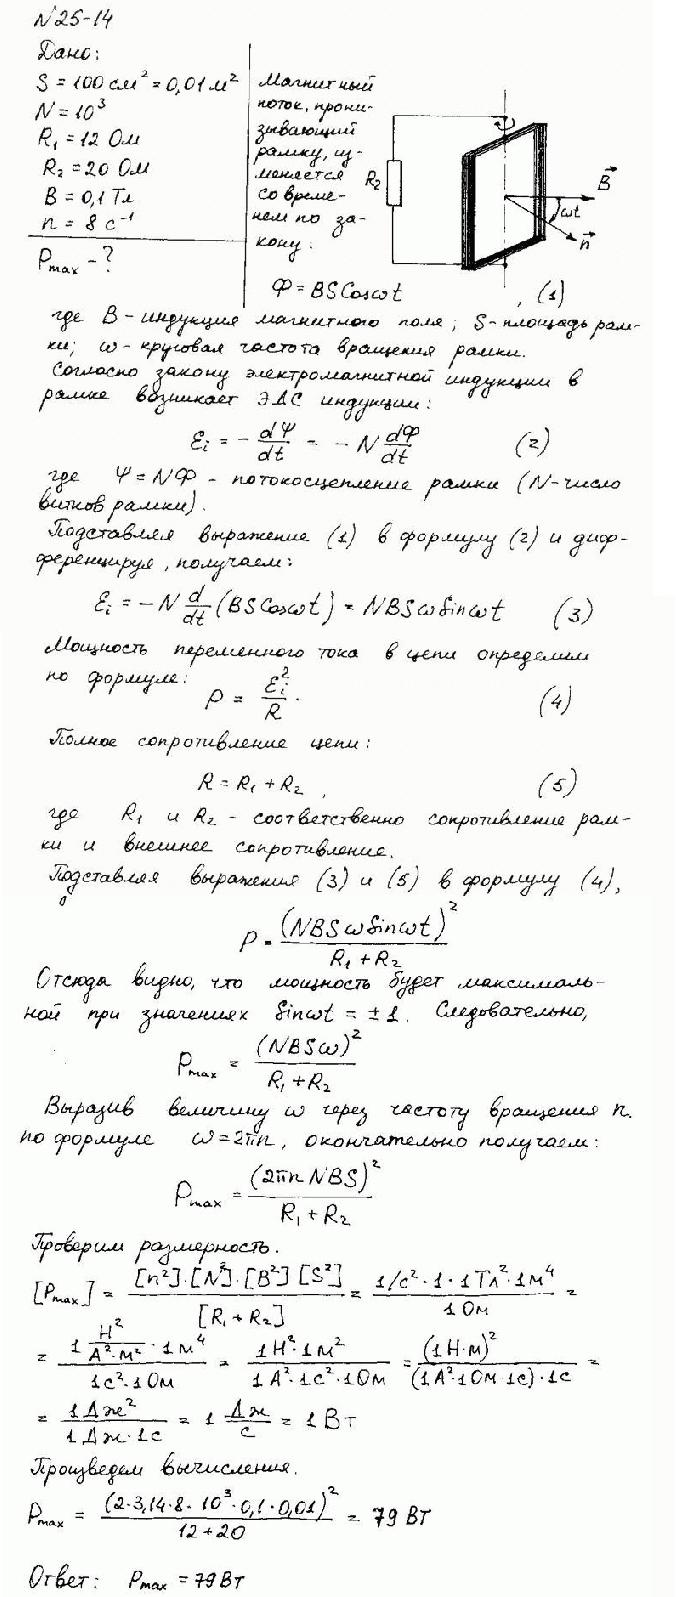 N25-14
Дано:
S = 100 см² = 0,01 м²
N = 10³
R₁ = 12 Ом
R₂ = 20 Ом
B = 0,1 Тл
n = 8 с⁻¹
Pmax - ?
Магнитный
поток, прони-
зывающий
рамку, из-
меняется
со време-
нем по за-
кону:
R₂
B⃗
ωt
n⃗
Ф = BS Cosωt , (1)
где B - индукция магнитного поля; S - площадь рам-
ки; ω - круговая частота вращения рамки.
Согласно закону электромагнитной индукции в
рамке возникает ЭДС индукции:
Ɛi = - dΨ/dt = - N dФ/dt (2)
где Ψ = NФ - потокосцепление рамки (N - число
витков рамки).
Подставляя выражение (1) в формулу (2) и диф-
ференцируя, получаем:
Ɛi = -N d/dt (BS Cosωt) = NBSω Sinωt (3)
Мощность переменного тока в цепи определим
по формуле:
P = Ɛi²/R . (4)
Полное сопротивление цепи:
R = R₁ + R₂ , (5)
где R₁ и R₂ - соответственно сопротивление рам-
ки и внешнее сопротивление.
Подставляя выражения (3) и (5) в формулу (4),
P = (NBSω Sinωt)²/(R₁ + R₂)
Отсюда видно, что мощность будет максималь-
ной при значениях Sinωt = ± 1. Следовательно,
Pmax = (NBSω)²/(R₁ + R₂)
Выразив величину ω через частоту вращения n.
по формуле ω = 2πn, окончательно получаем:
Pmax = (2πn NBS)²/(R₁ + R₂)
Проверим размерность.
[Pmax] = [n²]·[N²]·[B²][S²]/[R₁ + R₂] = 1/с²·1·1Тл²·1м⁴/1 Ом =
= 1 Н²/(А²·м²)·1м⁴/(1с²·1Ом) = 1Н²·1м²/(1А²·1с²·1Ом) = (1Н·м)²/((1А²·1Ом·1с)·1с) =
= 1Дж²/(1Дж·1с) = 1 Дж/с = 1 Вт
Произведем вычисления.
Pmax = (2·3,14·8·10³·0,1·0,01)²/(12+20) = 79 Вт
Ответ: Pmax = 79 Вт